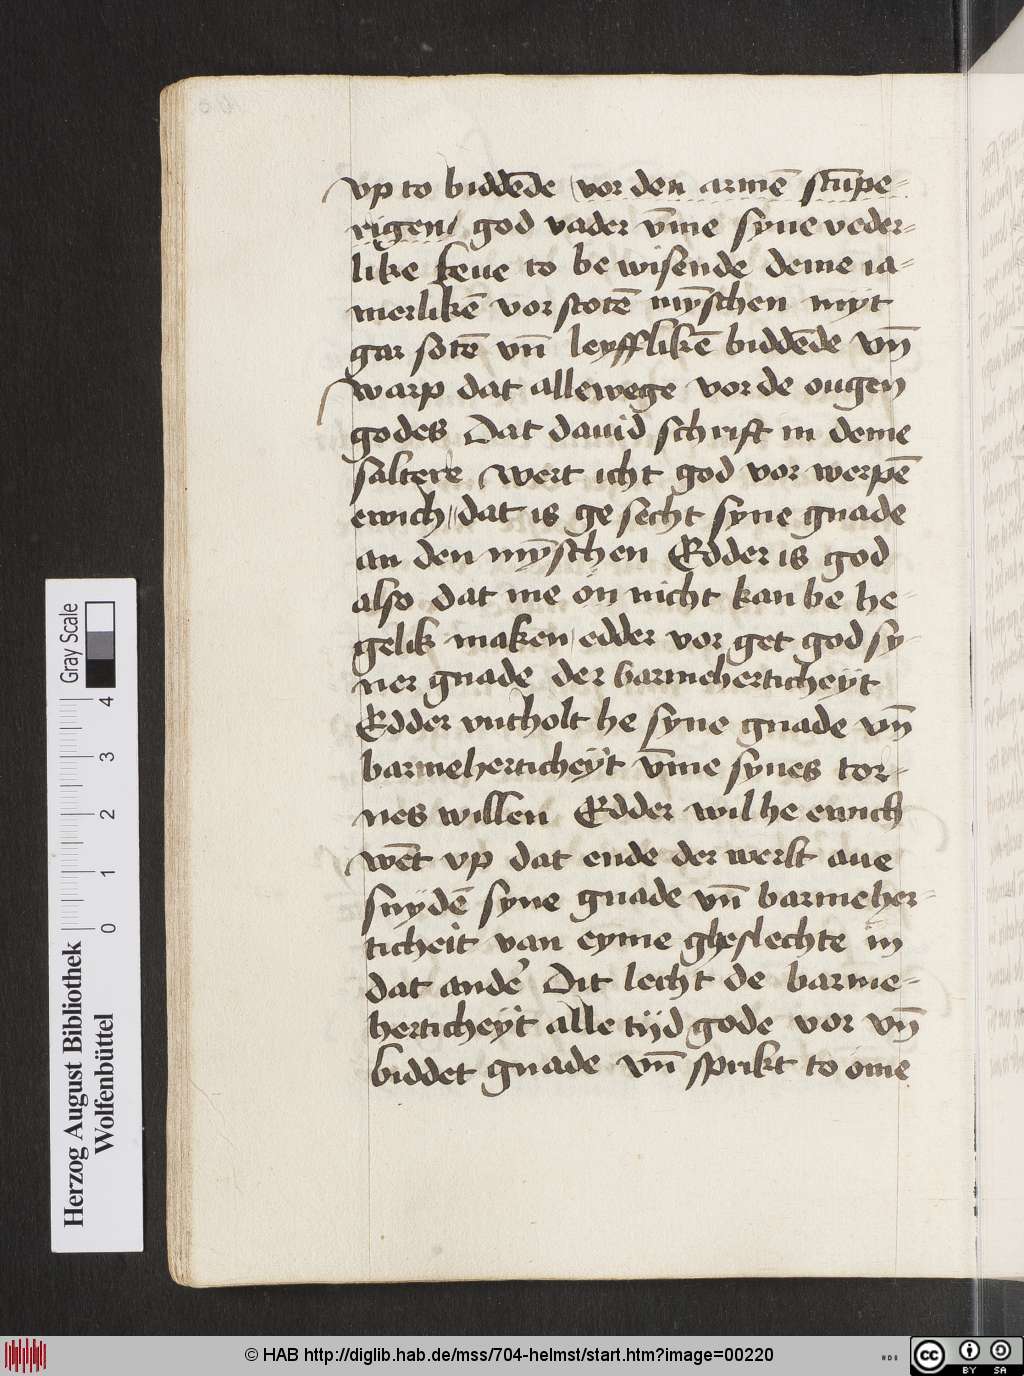 vp to biddēde vor den armē stūpe-
rigen god vader v̄me syne veder-
like leue to be wisende deme ia-
merlikē vor stotē mȳschen myt
gar sotē vn̄ leyfflikē biddēde vn̄
warp dat allewege vor de ougen
godes Dat dauid schrift in deme
saltere wert icht god vor werpē
ewich dat is ge secht syne gnade
an den mȳschen Edder is god
also dat me ön nicht kan be he-
gelik maken edder vor get god sy-
ner gnade der barmeherticheÿt
Edder vntholt he syne gnade vn̄
barmeherticheÿt v̄me synes tor-
nes willen Edder wil he ewich
wēt vp dat ende der werlt aue
snydē syne gnade vn̄ barmeher-
ticheit van eyme gheslechte in
dat andē Dit lecht de barme-
herticheÿt alle tijd gode vor vn̄
biddet gnade vn̄ sprikt to öme
Herzog August Bibliothek
Wolfenbüttel
0 1 2 3 4
Gray Scale
© HAB http://diglib.hab.de/mss/704-helmst/start.htm?image=00220
cc
BY SA